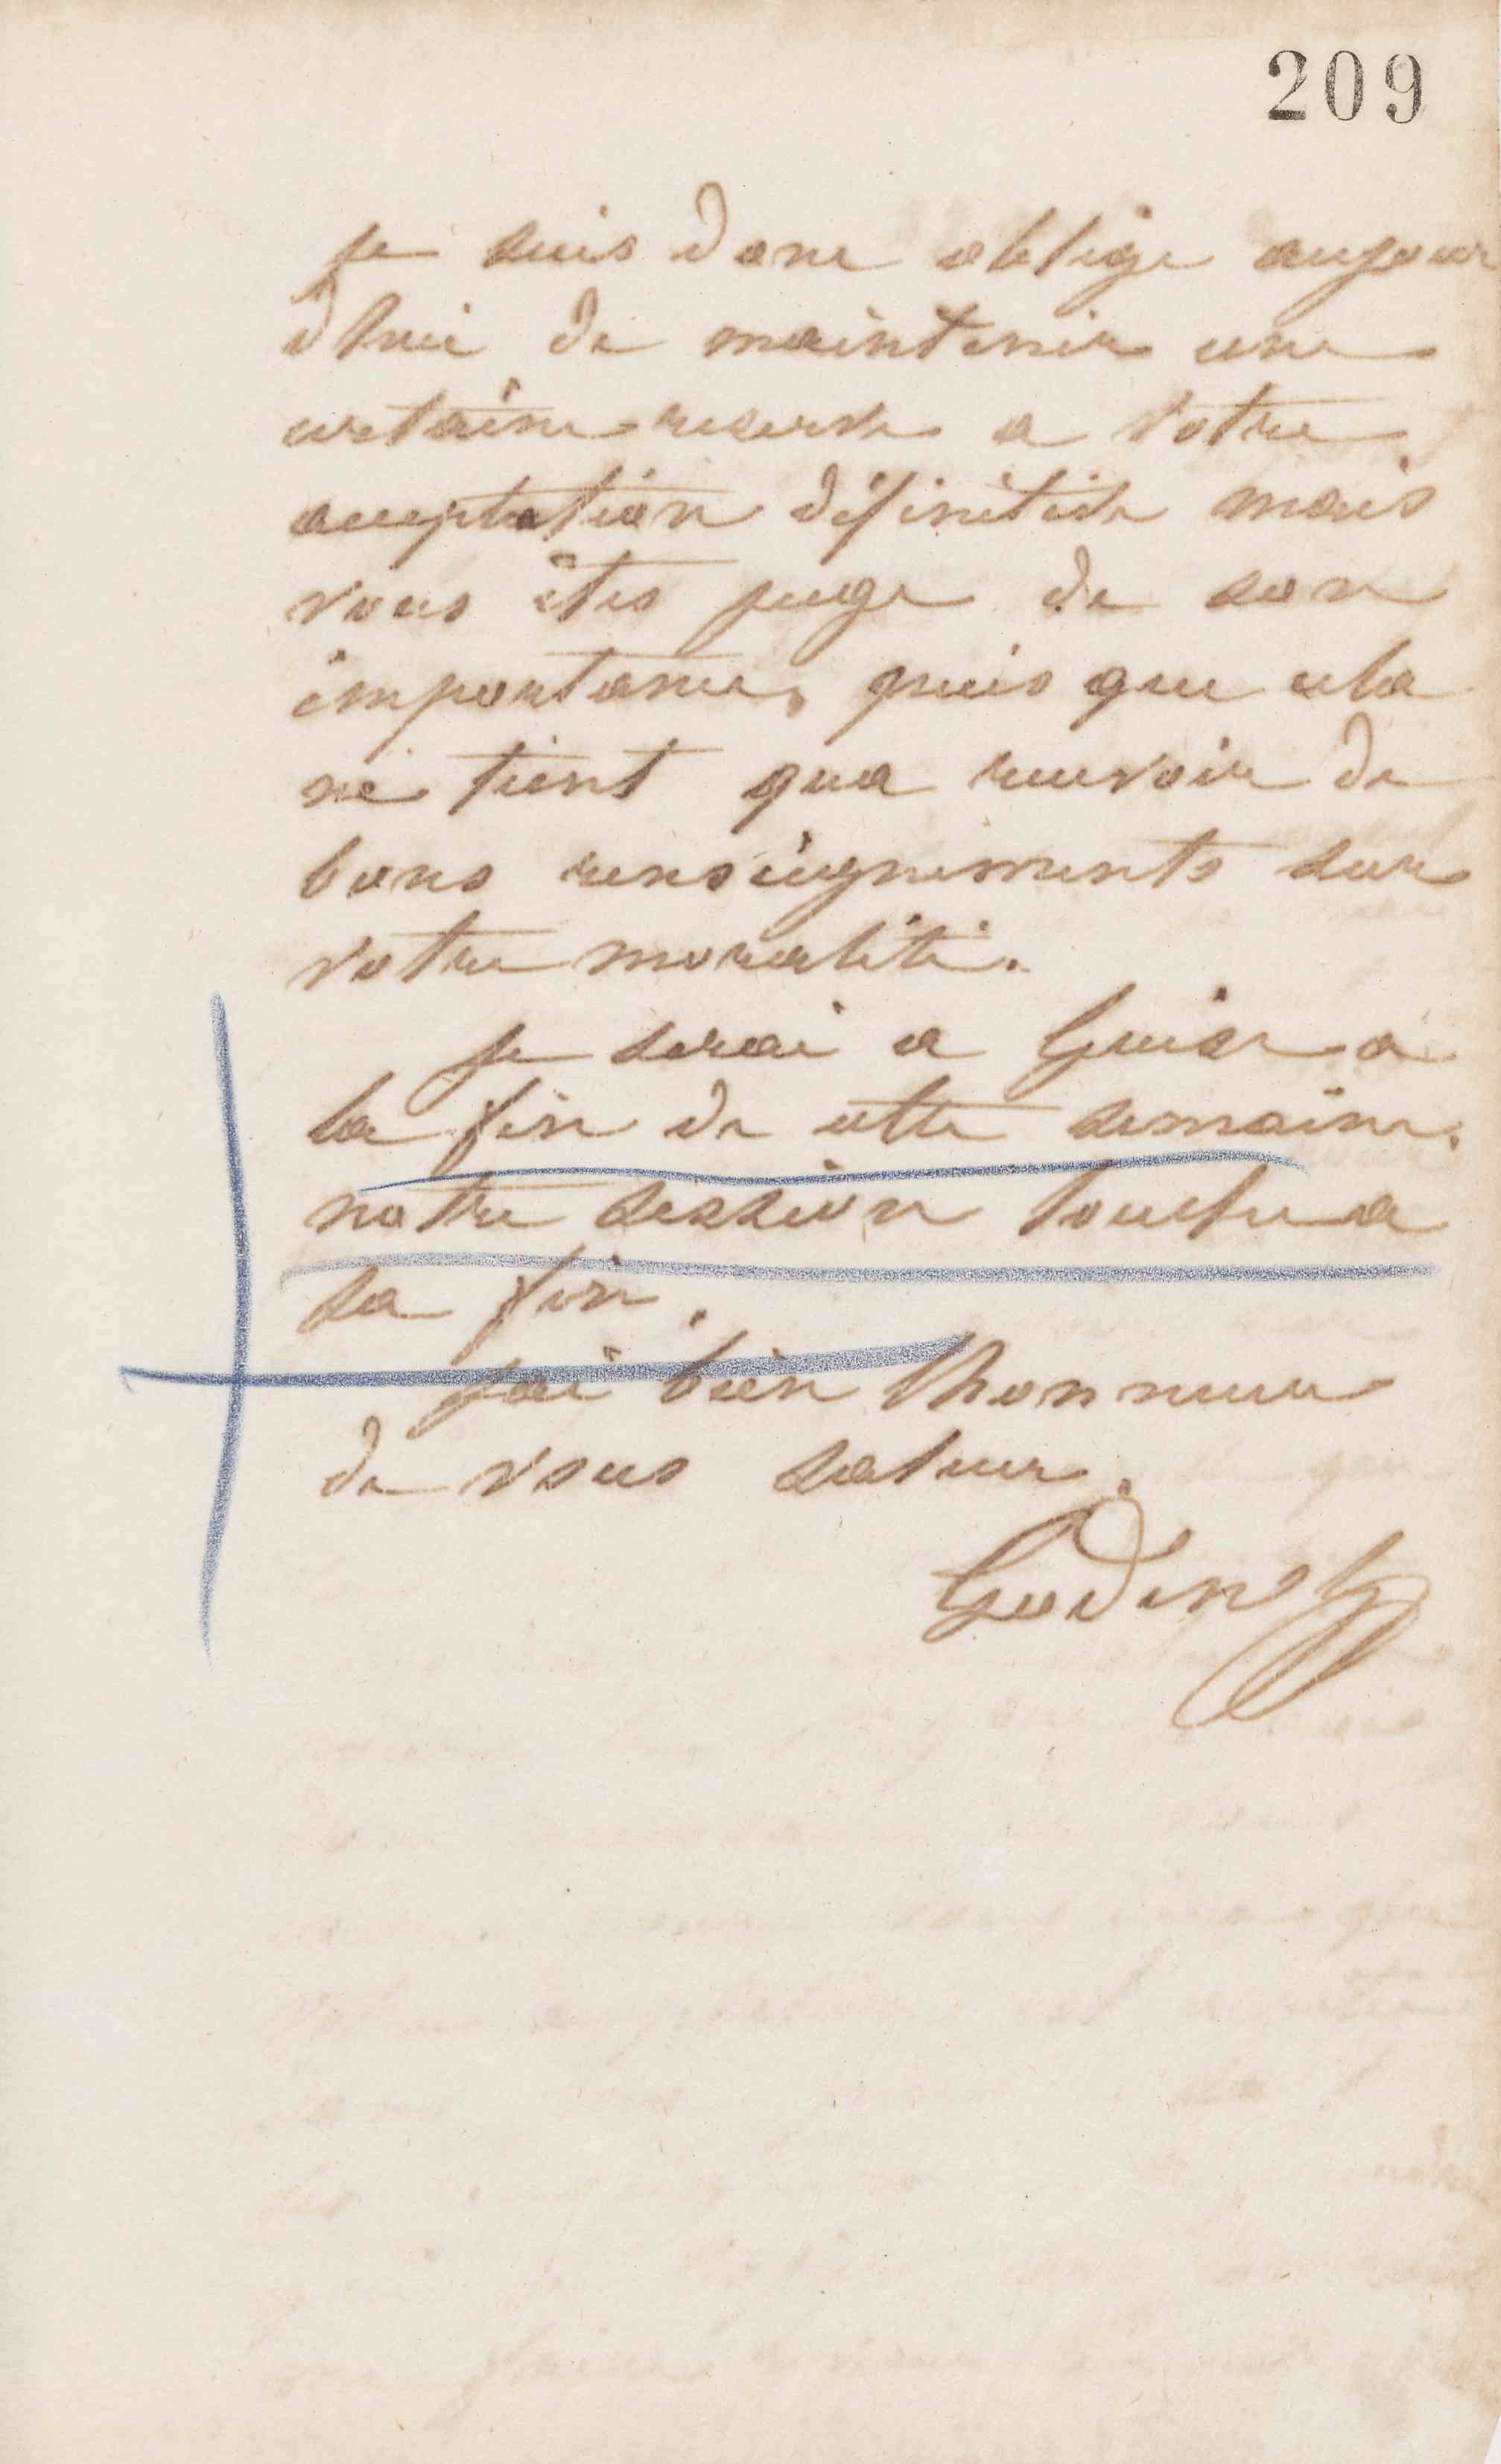 209
je suis donc obligé aujour
dhui de maintenir une
certaine reserve a votre
acceptation définitive mais
vous êtes juge de son
importance, puis que cela
ne tient qua recevoir de
bons renseignements sur
votre moralité.
je serai a Guise a
la fin de cette semaine.
notre session touche a
sa fin.
jai bien lhonneur
de vous saluer.
Godin